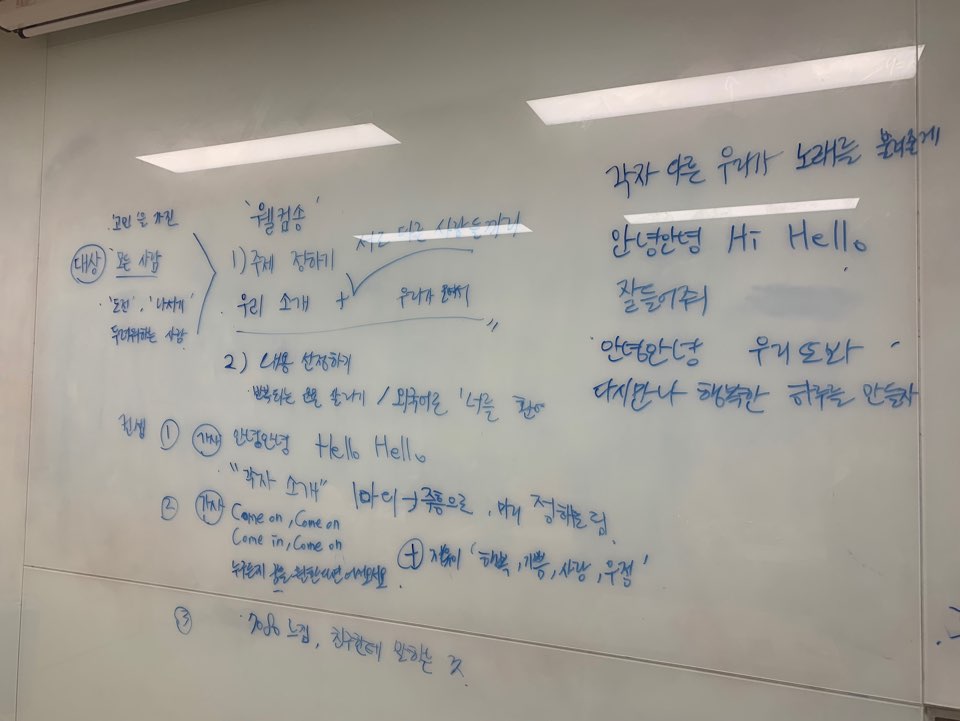 '고민'을 가진
대상 '모든 사람'
'도전', '나서기'
두려워하는 사람
'웰컴송'
1) 주제 정하기
서로 다른 사람들끼리
우리 소개 +
우리가 모여서
2) 내용 선정하기
· 반복되는 살리기 / 외국어로 '너를 환영
컨셉 ① 가사 안녕안녕 Hello Hello
"각자 소개" 1마디 → 즉흥으로, 미리 정해도 됨.
② 가사 Come on, Come on
Come in, Come on
누구든지 원한다면 어서오세요.
+ 자막이 '행복, 기쁨, 사랑, 우정'
③ · 7080 느낌, 친구한테 말하는 것
각자 다른 우리가 노래를 불러줄게
안녕안녕 Hi Hello
잘들어줘
안녕안녕 우리또봐
다시만나 행복한 하루를 만들자